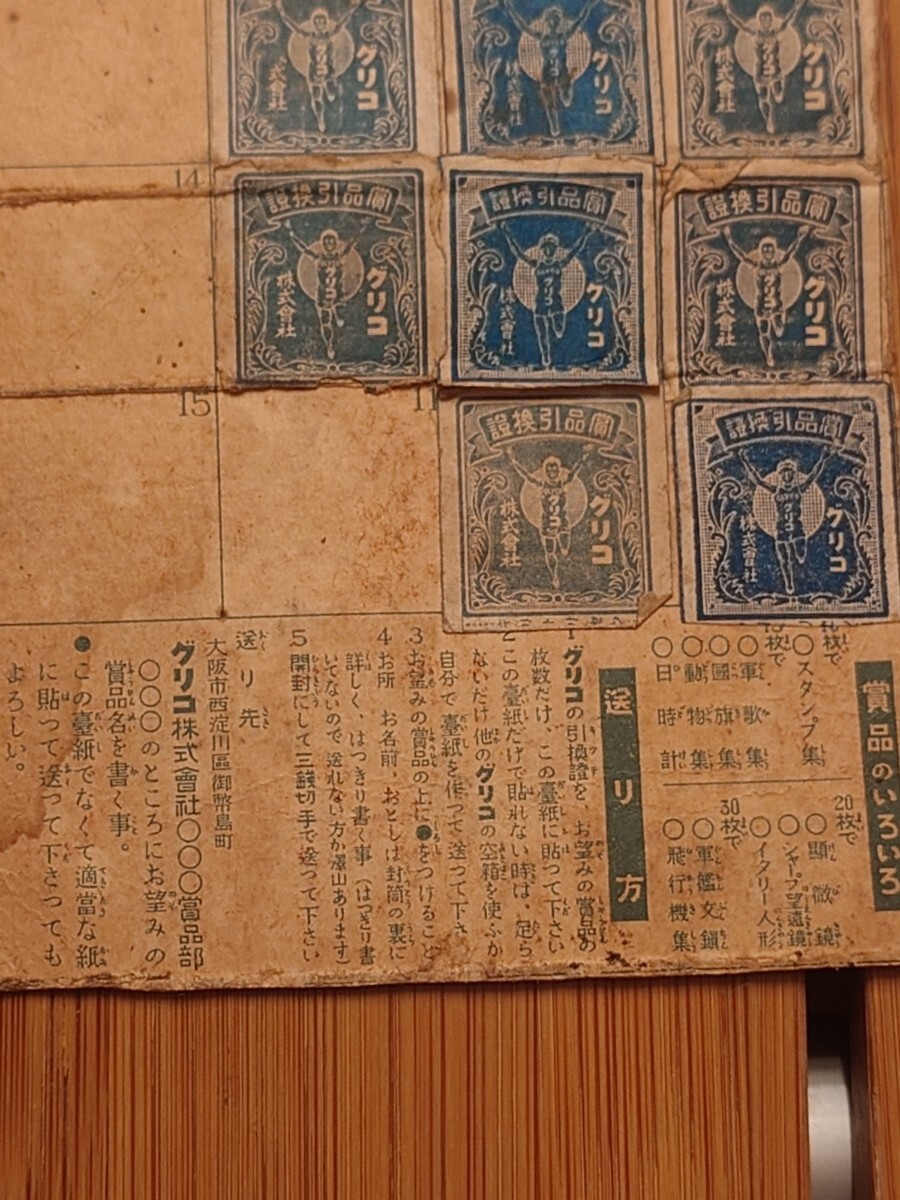 グリコ
株式會社
グリコ
株式會社
グリコ
株式會社
14
賞品引換證
グリコ
株式會社
賞品引換證
グリコ
株式會社
賞品引換證
グリコ
株式會社
15
賞品引換證
グリコ
株式會社
賞品引換證
グリコ
株式會社
賞品のいろいろ
枚で
○スタンプ集
枚で
○軍歌集
○國旗集
○動物集
○日時計
20枚で
○顯微鏡
○シャープ望遠鏡
○イタリー人形
30枚で
○軍艦文鎭
○飛行機集
送リ方
1 グリコの引換證を、お望みの賞品の
枚数だけ、この臺紙に貼つて下さい
2 この臺紙だけで貼れない時は、足ら
ないだけ他のグリコの空箱を使ふか
自分で臺紙を作つて送つて下さ
3 お望みの賞品の上に●をつけること
4 お所 お名前、おとしは封筒の裏に
詳しく、はつきり書く事（はつきり書
いてないので送れない方が澤山あります）
5 開封にして三錢切手で送つて下さい
送リ先
大阪市西淀川區御幣島町
グリコ株式會社○○○賞品部
○○○のところにお望みの
賞品名を書く事。
●この臺紙でなくて適當な紙
に貼つて送つて下さつても
よろしい。